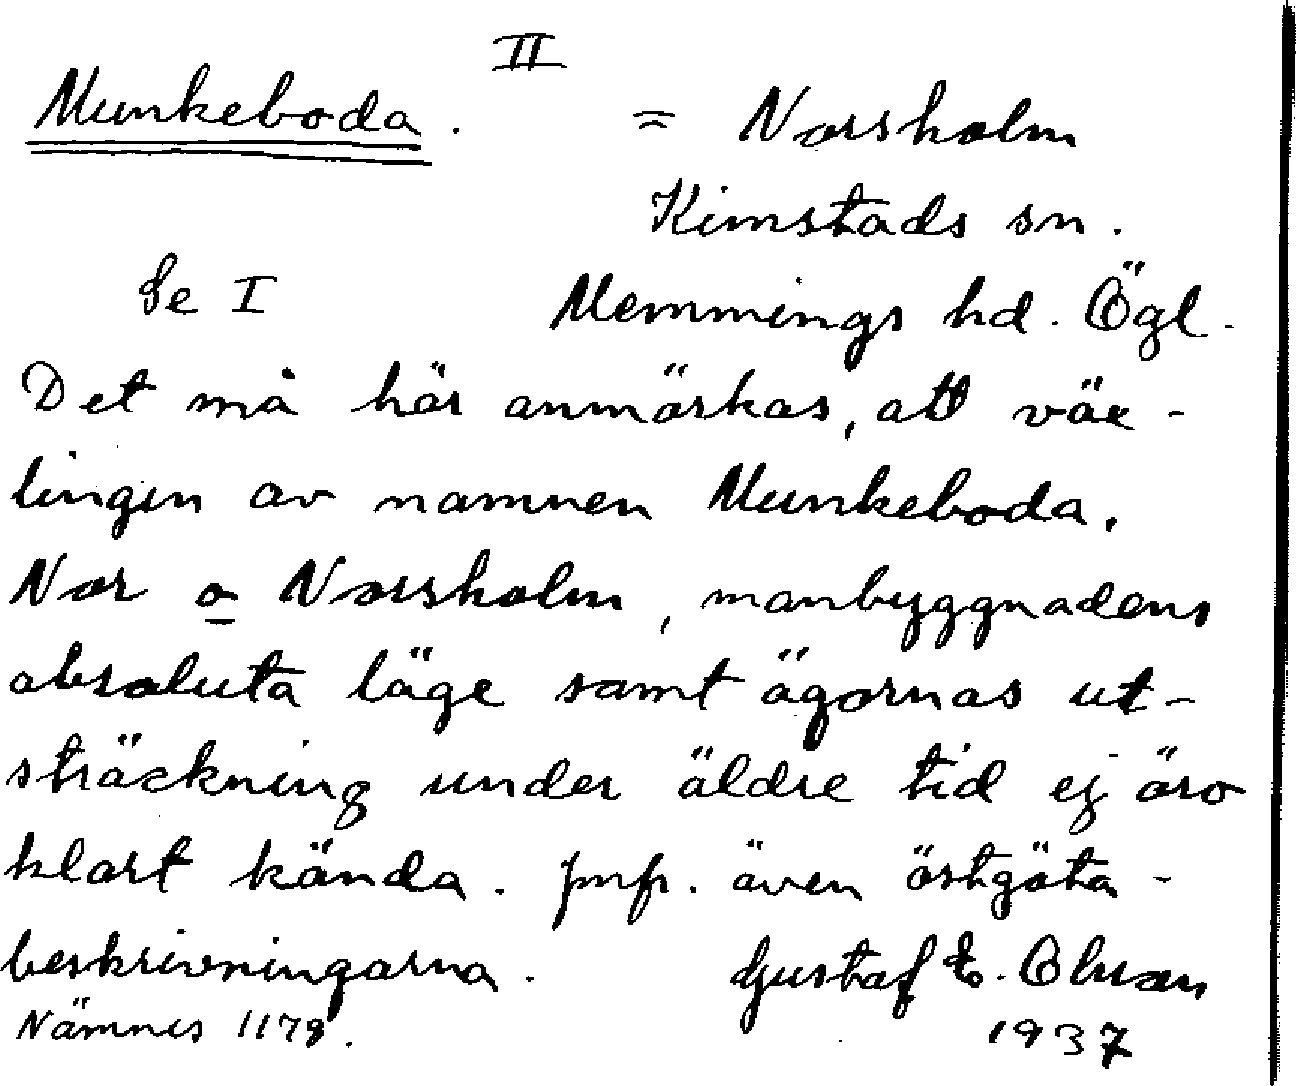 II
Munkeboda. = Norsholm
Kimstads sn.
Se I Memmings hd. Ögl.
Det må här anmärkas, att väx-
lingen av namnen Munkeboda,
Nor o Norsholm, manbyggnadens
absoluta läge samt ägornas ut-
sträckning under äldre tid ej äro
klart kända. jmfr. även östgöta-
beskrivningarna. Gustaf E. Olsson
Nämnes 1179. 1937